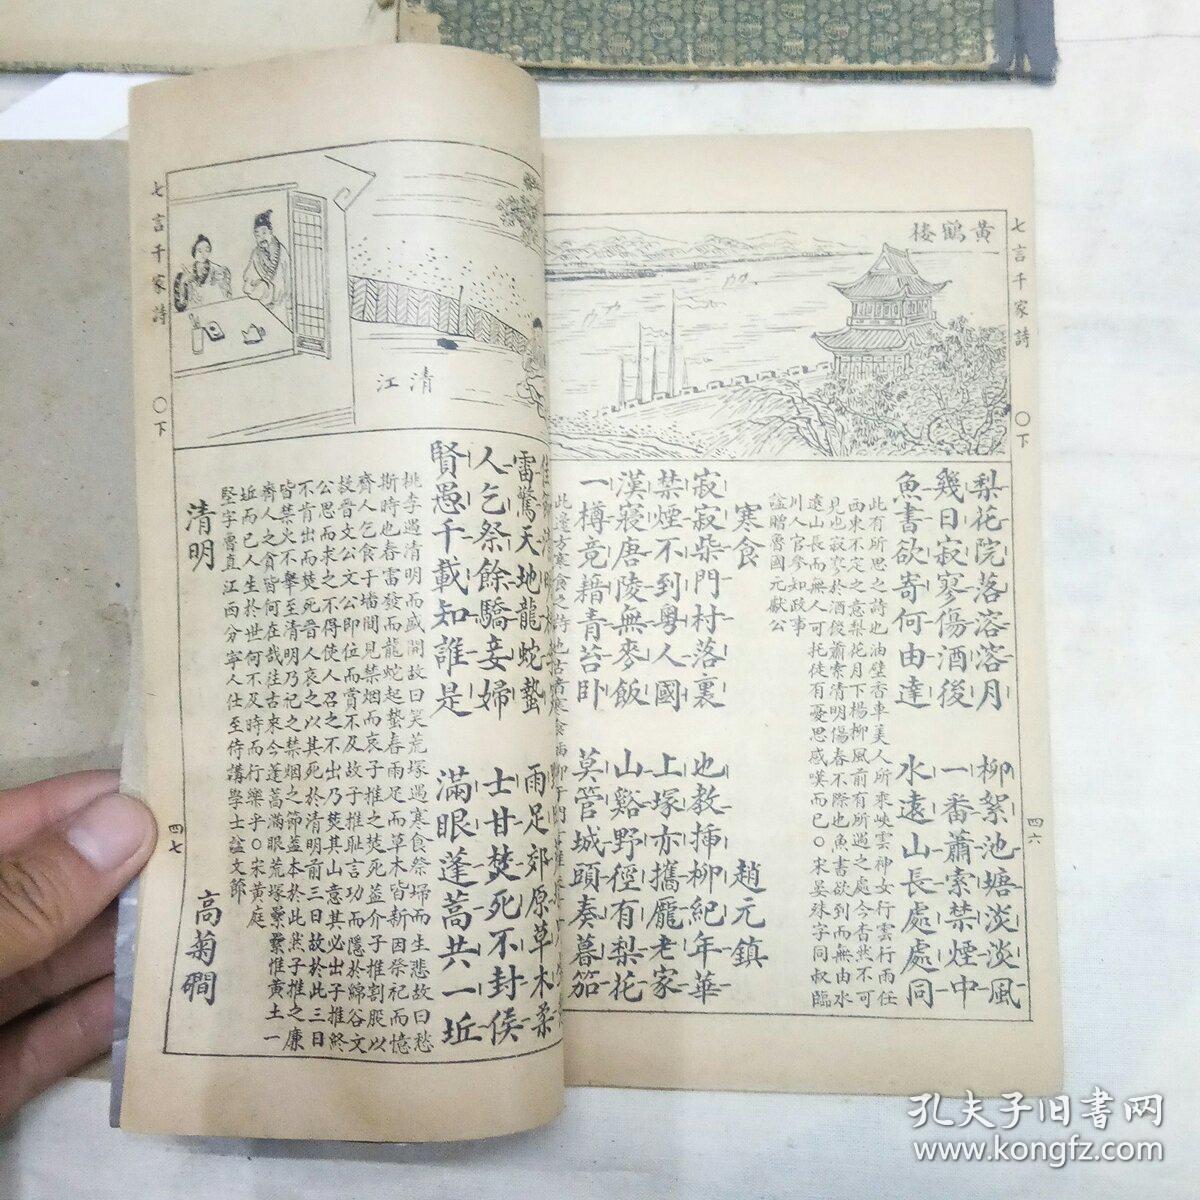 七言千家詩
○下
四六
黃鶴樓
梨花院落溶溶月　柳絮池塘淡淡風
幾日寂寥傷酒後　一番蕭索禁煙中
魚書欲寄何由達　水遠山長處處同
此有所思之詩也油壁香車美人所乘峽雲神女行雲行雨任
西東不定之意梨花月下楊柳風前有所遇之處今杳然不可
見也寂寥於酒後蕭索清明傷春不際也魚書欲到而無由水
遠山長而無人可托徒有憂思感嘆而已○宋晏殊字同叔臨
川人官參知政事
諡贈魯國元獻公
寒食　趙元鎮
寂寂柴門村落裏　也教插柳紀年華
禁煙不到粵人國　上塚亦攜龐老家
漢寢唐陵無麥飯　山谿野徑有梨花
一樽竟藉青苔卧　莫管城頭奏暮笳
七言千家詩
○下
四七
清江
雷驚天地龍蛇蟄　雨足郊原草木柔
人乞祭餘驕妾婦　士甘焚死不封侯
賢愚千載知誰是　滿眼蓬蒿共一坵
桃李遇清明而盛開故曰笑荒塚遇寒食祭埽而生悲故曰愁
斯時也春雷發而龍蛇起蟄春雨足而草木皆新因祭祀而憶
齊人乞食于墦間見禁烟而哀子推之焚死蓋介子推割股以
故晉文公文公即位而賞不及故子推耻言功而隱於綿谷文
公思而求之不得使人召之不出乃焚其山意其必出子推終
不肯出而焚死晉人哀之以其死於清明前三日故於此三日
皆禁火不舉至清明乃祀之禁烟之節蓋本於此然子推之廉
齊人之貪皆何在哉往古來今蓬蒿滿眼荒塚纍纍惟黃土一
坵而已人生於世何不及時而行樂乎○宋黃庭
堅字魯直江西分寧人仕至侍講學士諡文節
清明　高菊磵
孔夫子旧书网
www.kongfz.com